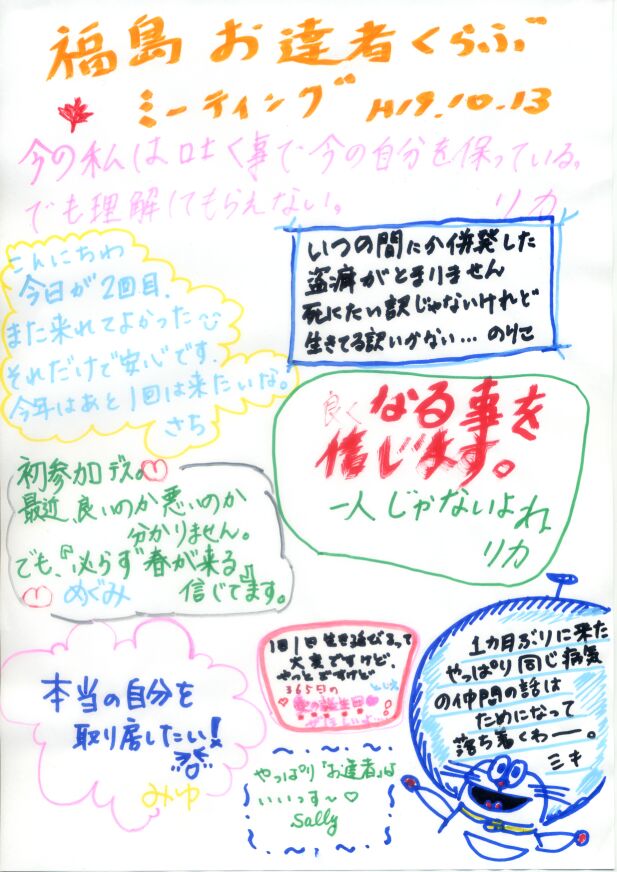 福島お達者くらぶ
ミーティング H19.10.13
今の私は吐く事で今の自分を保っている。
でも理解してもらえない。 リカ
いつの間にか併発した
盗癖がとまりません
死にたい訳じゃないけれど
生きてる談いがない… のりこ
こんにちわ
今日が2回目.
また来れてよかった
それだけで安心です.
今年はあと1回は来たいな。
さち
良くなる事を
信じます。
一人じゃないよね
リカ
初参加デス。
最近、良いのか悪いのか
分かりません。
でも、『必らず春が来る』
信じてます。
めぐみ
1カ月ぶりに来た
やっぱり同じ病気
の仲間の話は
ためになって
落ち着くわー。
ミキ
本当の自分を
取り戻したい!
みゆ
1日1日生き延びるって
大変ですけど、
やっとですけど
365日の
やっぱり「お達者」は
いいっす〜♡
Sally